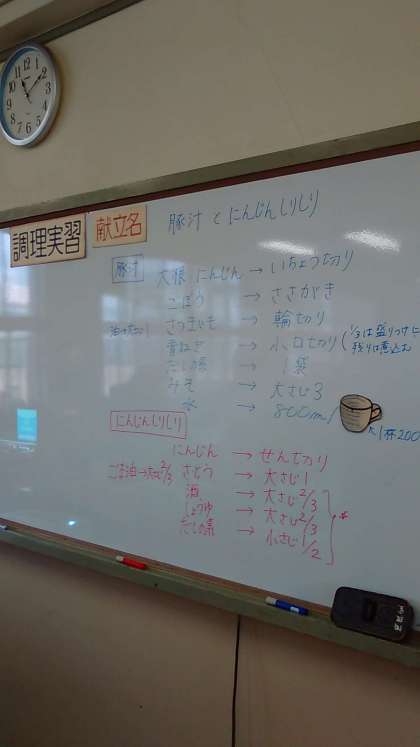 調理実習 献立名 豚汁 と にんじんしりしり
豚汁
大根 にんじん → いちょう切り
ごぼう → ささがき
さつまいも → 輪切り
長ねぎ → 小口切り (1/3は盛りつけに 残りは煮込む
だしの素 → 1袋
みそ → 大さじ3
水 → 800ml
1杯200
にんじんしりしり
にんじん → せん切り
ごま油→大さじ2/3 さとう → 大さじ1
酒 → 大さじ2/3
しょうゆ → 大さじ2/3
だしの素 → 小さじ1/2